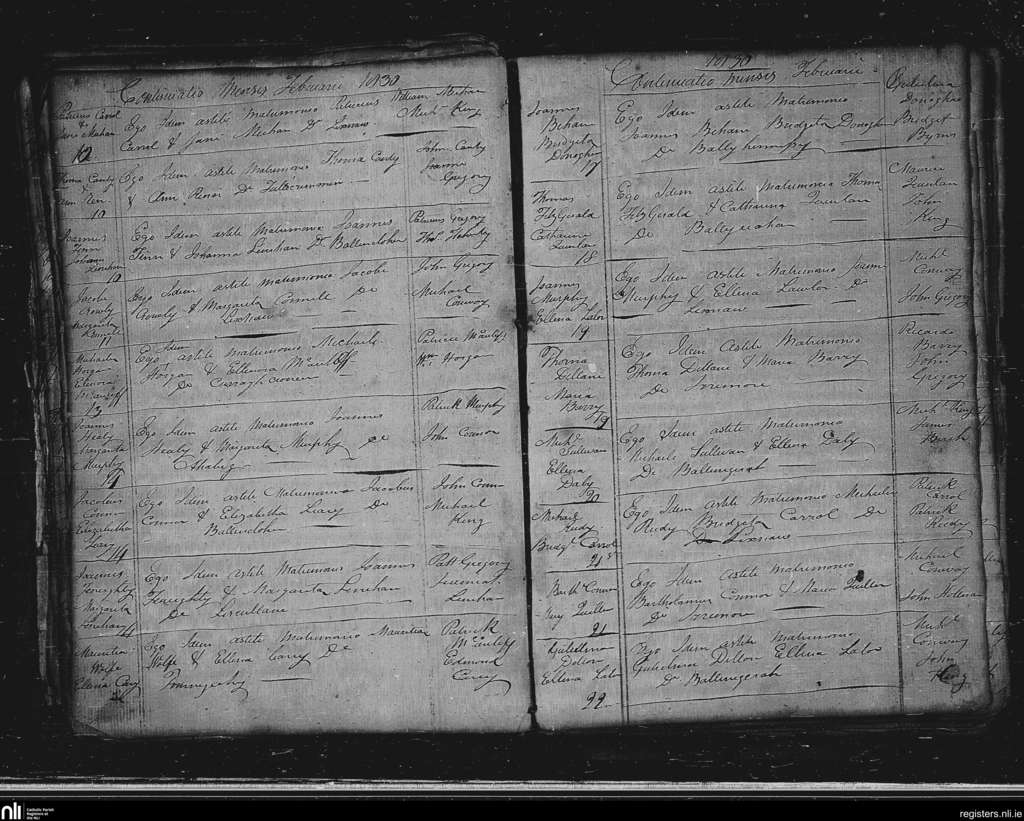 Continuatio Mensis Februarii 1830
Patricius Carrol
&
Jane Mehan
12
Ego Idem astite Matrimonio Patricius
Carrol & Jani Mechan De Lixnaw
William Mechan
Mich. King
Thoma Canty
&
Ann Ren
10
Ego Idem astite Matrimonio Thoma Canty
& Ann Rensi De
John Canty
Joanna
Gregory
Joannes
Finn
Johanna
Linehan
10
Ego Idem astite Matrimonio Joannis
Finn & Johanna Linehan De Ballincloher
Patricius Gregory
Jacobi
Crowly
Margarita
11
Ego Idem astite Matrimonio Jacobi
Crowly & Margarita De
Lixnaw
John Gregory
Michael
Conway
Michaelis
Horgan
Elenora
McAuliff
13
Ego Idem astite Matrimonio Michaele
Horgan & Ellenora McAuliff
De
Patrice McAuliff
Wm Horgan
Joannis
Healy
Margarita
Murphy
14
Ego Idem astite Matrimonio Joannis
Healy & Margarita Murphy De
Patrick Murphy
John Connor
Jacobus
Connor
Elizabetha
Leary
14
Ego Idem astite Matrimonio Jacobus
Connor & Elizabetha Leary De
Ballincloh
John Conn
Michael
King
Joannes
Feaughty
Margarita
Linehan
Ego Idem astite Matrimonio Joannis
Feaughty & Margarita Linehan
De
Patt Gregory
Jeremiah
Linehan
Mauritius
Wolfe
Ellena Cary
Ego Idem astite Matrimonio Mauritius
Wolfe & Ellena Carey De
Patrick
McAuliff
Edmond
Carey
1830
Continuatio mensis Februarii
Joannes
Behan
Bridgeta
Donoghu
17
Ego Idem astite Matrimonio
Joannis Behan Bridgeta Donogh
De
Donoghue
Bridget
Byrns
Thomas
FitzGerald
Catharine
Quinlan
18
Ego Idem astite Matrimonio Thoma
FitzGerald & Catharina Quinlan
De
Maurice
Quinlan
John
King
Joannes
Murphy
Ellena Lalor
19
Ego Idem astite Matrimonio Joannis
Murphy & Ellena Lawlor De
Lixnaw
Michl
Conway
John Gregory
Thoma
Dillane
Maria
Barry
19
Ego Idem Astite Matrimonio
Thoma Dillane & Maria Barry
De Irremore
Ricardo
Barry
John
Gregory
Michl
Sullivan
Ellena
Daly
20
Ego Idem astite Matrimonio
Michaele Sullivan & Ellena Daly
De Ballingerah
James
Michael
Reidy
Bridgt Carrol
21
Ego Idem astite Matrimonio Michaelis
Reidy Bridgeta Carrol De
De Lixnaw
Patrick
Carrol
Patrick
Reedy
Barth Connor
Mary Quilter
21
Ego Idem Astite Matrimonio
Bartholamius Connor & Maria Quilter
De Irremore
Michael
Conway
Gulielmo
Dillon
Ellena Lalor
22
Ego Idem astite Matrimonio
Gulielmu Dillon Ellena Lalor
De Ballingerah
Michl
Conway
John
King
nli
Catholic Parish
Registers at
the NLI
registers.nli.ie